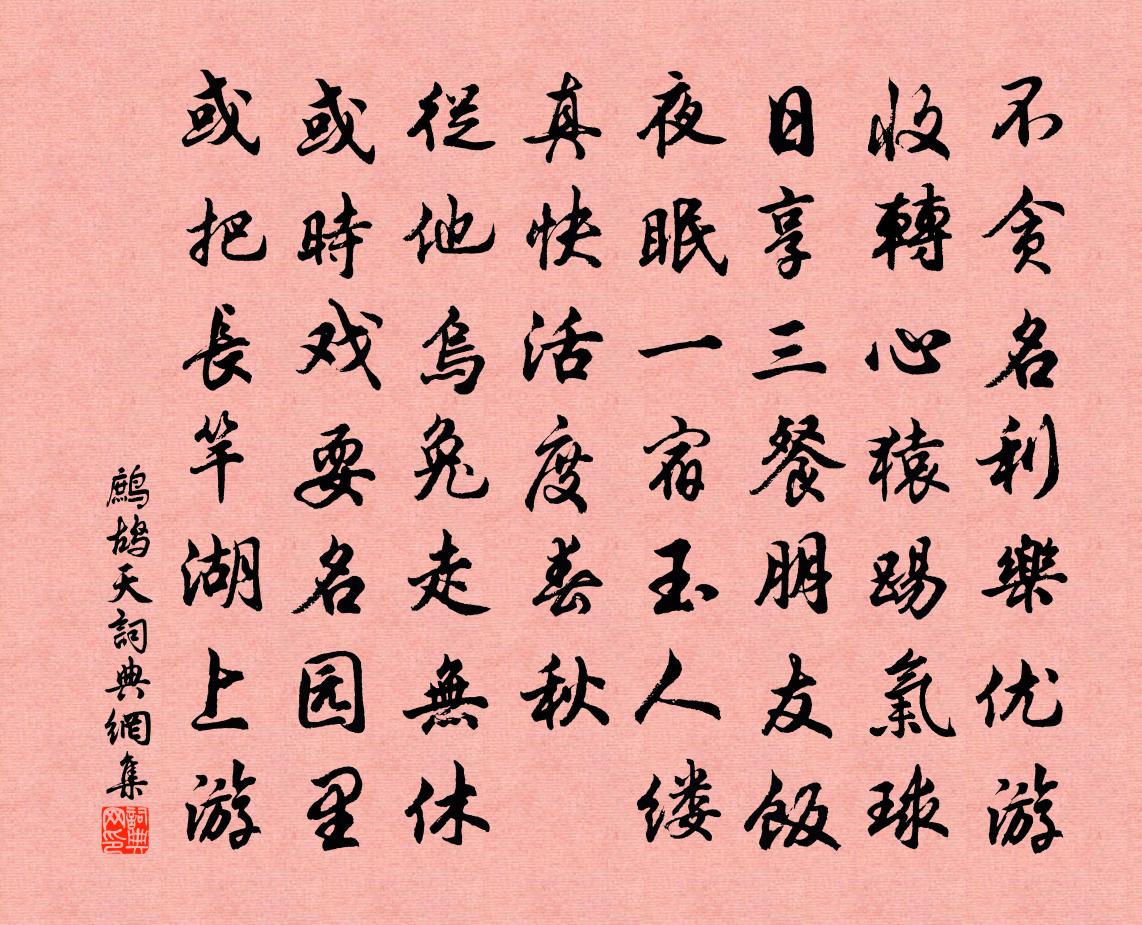 不贪名利樂优游
收轉心猿踢氣球
日享三餐朋友飯
夜眠一宿玉人缕
真快活度春秋
從他烏兔走無休
或時戏耍名园里
或把長竿湖上游
鷓鴣天詞典網集
詞典网印